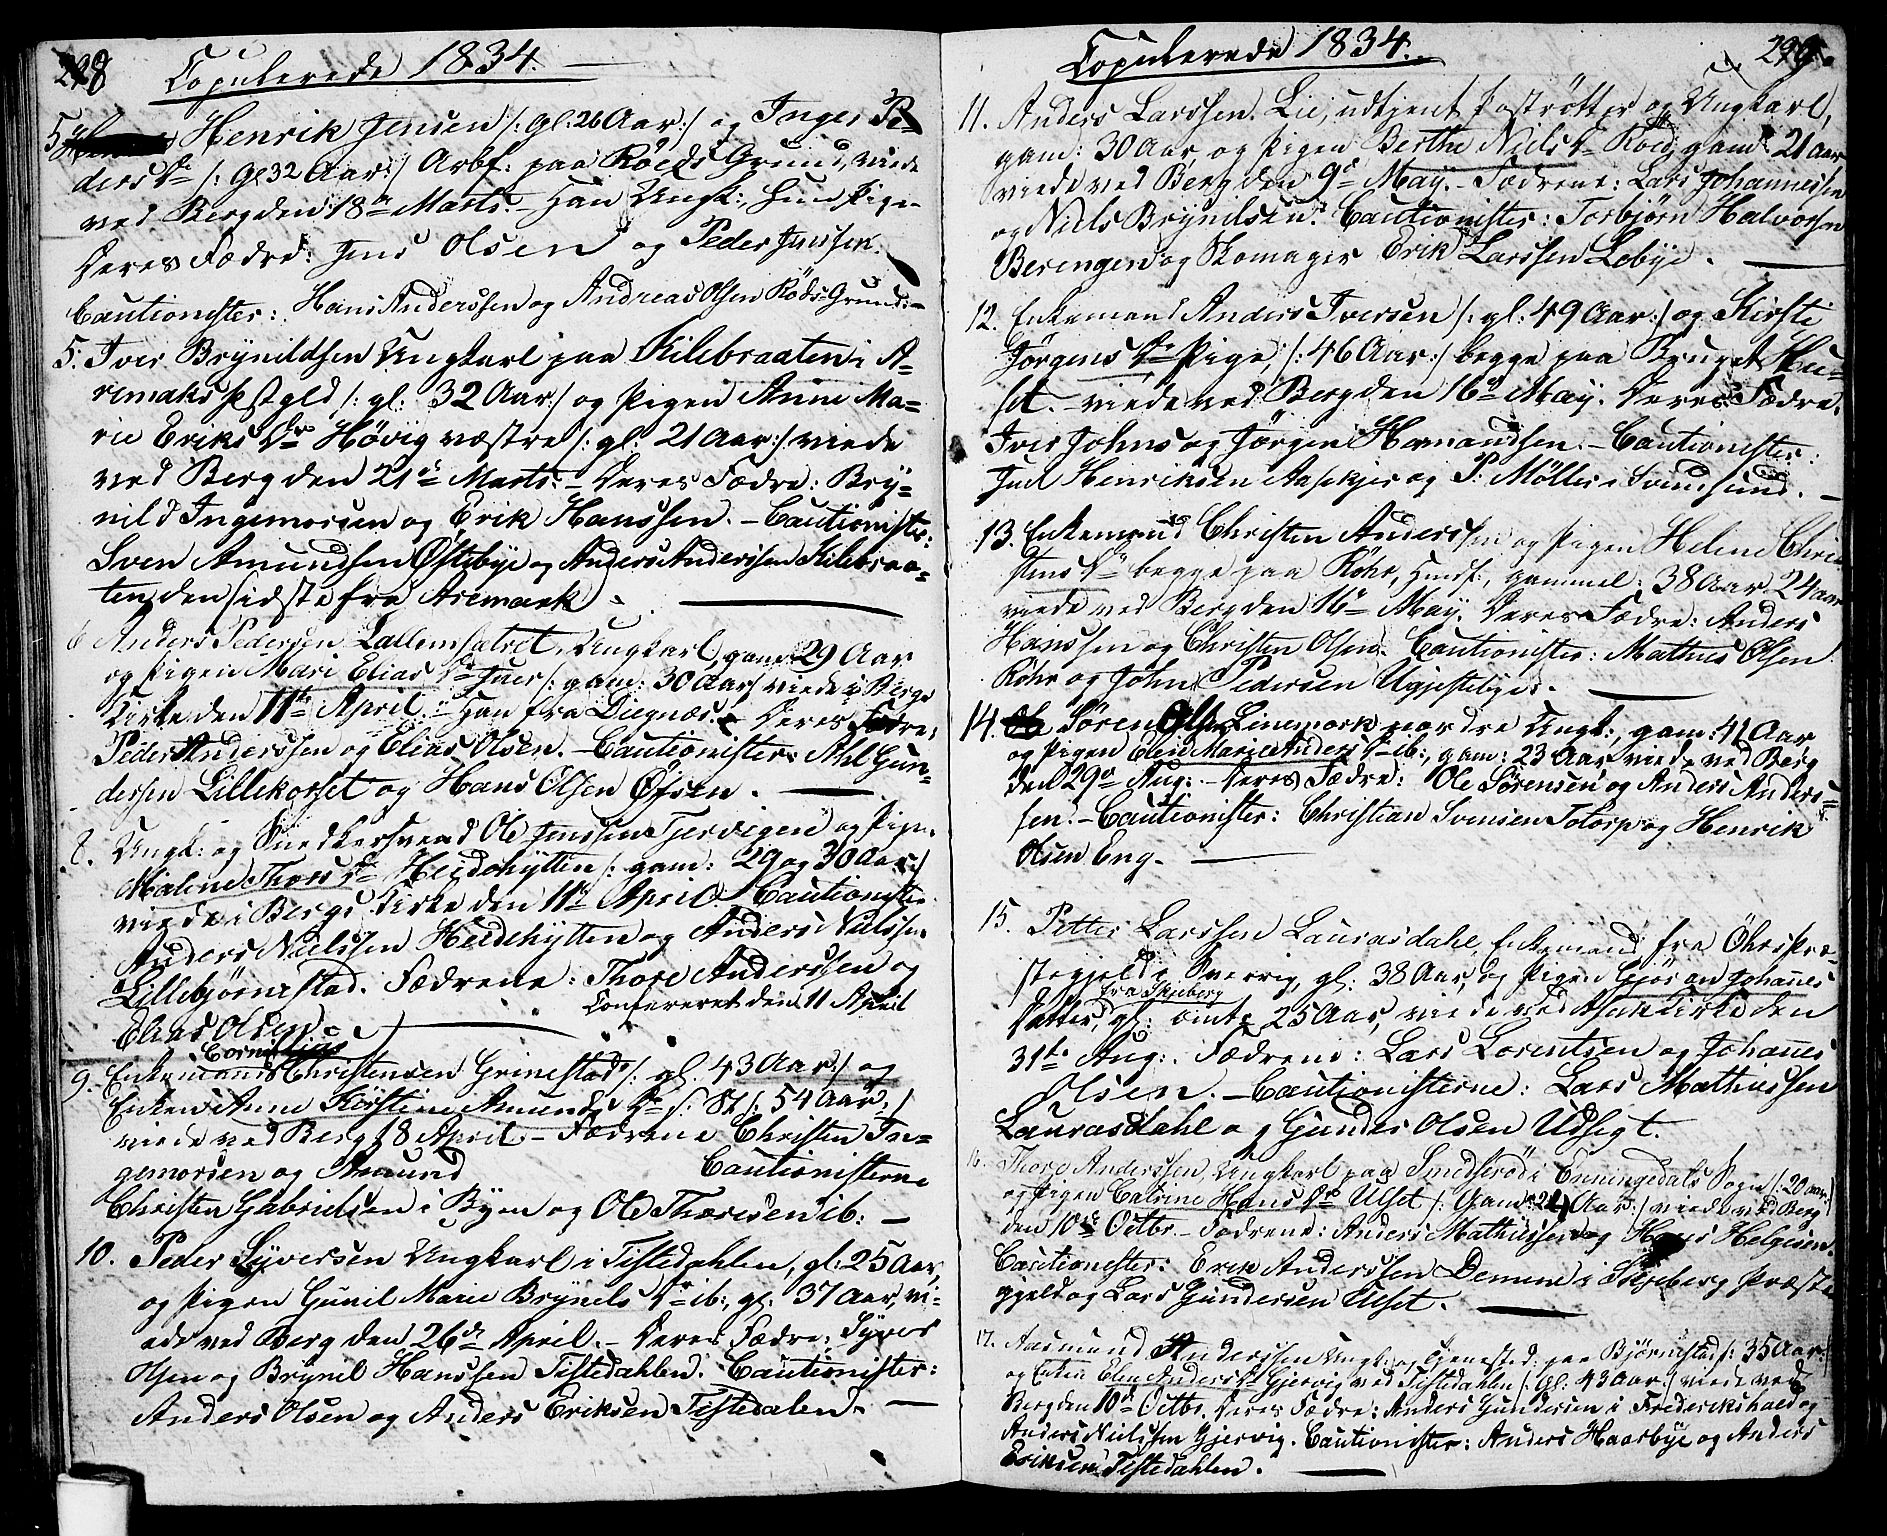 298
Copulerede 1834.
5. Henrik Jensen /: gl: 26 Aar :/ og Inger Pe-
ders Dr /: gl 32 Aar :/ Arbf: paa Röeds Grund, viede
ved Berg den 18de Marts. – Han Ungk:, hun Pige
Deres Fædre: Jens Olsen og Peder Jenssen.
Cautionister: Hans Anderssen og Andreas Olsen Röds-Grund. –
5. Iver Brynildsen Ungkarl paa Kilebraaten i A-
remaks Pstgld /: gl: 32 Aar :/ og Pigen Anne Ma-
rie Eriks Dr Hövig væstre /: gl: 21 Aar :/ viede
ved Berg den 21de Marts. – Deres Fædre: Bry-
nild Ingemorsen og Erik Hanssen. – Cautionister:
Sven Amundsen Östebye og Anders Anderssen Kilebraa-
ten, den sidste fra Aremark.
6 Anders Pedersen Lallemsætret, Ungkarl, gam: 29 Aar
og Pigen Mari Elias Dr /: gam: 30 Aar / viede i Bergs
Kirke den 11te April. – Han fra Diegnæs. – Deres Fædre:
Peder Anderssen og Elias Olsen. – Cautionister: Ahl Gun-
dersen Lillekorset og Hans Olsen Öfsen.
8. Ungk: og Snedkersvend Ole Jenssen Tjervigen og Pigen
Malene Thors Dr Heidehytten /: gam: 29 og 30 Aar :/
viede i Bergs Kirke den 11te April. Cautionister
Anders Nielssen Heidehytten og Anders Nielssen
Lillebjörnestad. Fædrene: Thore Anderssen og
Elias Olsen.
Confereret den 11 April
9. Enkemand Cornelius Christensen Grimestad /: gl. 43 Aar :/ og
Enken Anne Kirstine Amunds Dr /: St /: 54 Aar :/
viede ved Berg 18 April – Fædrene Christen In-
gemorsen og Amund Cautionisterne
Christen Gabrielsen i Byen og Ole Thoresen ib: –
10. Peder Syversen Ungkarl i Tistedahlen, gl: 25 Aar,
og Pigen Gunil Marie Brynils Dr ib:, gl: 37 Aar, vi-
ede ved Berg den 26de April. – Deres Fædre: Syver
Olsen og Brynil Hanssen Tistedahlen. Cautionister:
Anders Olsen og Anders Eriksen Tistedalen. –
299.
Copulerede 1834.
11. Anders Larssen Lie, udtjent Poströtter og Ungkarl,
gam: 30 Aar, og Pigen Berthe Niels Dr Röed, gam: 21 Aar
viede ved Berg den 9de May. – Fædrene: Lars Johannessen
og Niels Brynilsen. Cautionister: Torbjörn Halvorsen
Berengen og Skomager Erik Larssen Lebye.
12. Enkemand Anders Iversen /: gl: 49 Aar :/ og Kirsti
Jörgens Dr Pige, /: 46 Aar :/ begge paa Bruget Hu-
set. – viede ved Berg den 16de May. Deres Fædre:
Iver Johns og Jörgen Hamandsen. – Cautionister:
Juel Henriksen Aaskjer og P. Möller i Svinesund. –
13. Enkemand Christen Anderssen og Pigen Helene Chri-
stens Dr begge paa Röhr, Huusf:, gammel: 38 Aar 24 aar
viede ved Berg den 16de May. Deres Fædre: Anders
Hanssen og Christen Olsen. Cautionister: Mathies Olsen
Röhr og John Pedersen Ugjestebye.
14. Sören Ols: Linemork nordre Ungk:, gam: 41 Aar
og Pigen Elen Marie Anders Dr ib:, gam: 23 Aar, viede ved Berg
den 29de Aug: – Deres Fædre: Ole Sörensen og Anders Anders-
sen. – Cautionister: Christian Svensen Totorp og Henrik
Olsen Eng. –
15. Petter Larssen Laurasdahl, Enkemand fra Öhrs Præ-
stegjeld i Sverrig, gl: 38 Aar, og Pigen Gjöran Johannes
Datter, fra Skjeberg gl: omtr 25 Aar, viede ved Asak Kirke den
31te Aug:. Fædrene: Lars Lorentsen og Johannes
Olsen. – Cautionisterne: Lars Mathiessen
Laurasdahl og Gunder Olsen Udsigt.
16. Thore Anderssen, Ungkarl paa Smedseröd i Enningedals Sogn /: 20 aar :/
og Pigen Catrine Hans Dr Ulset /: Gam: 24 Aar :/ viede ved Berg
den 10de Octbr. – Fædrene: Anders Mathiessen og Hans Helgesen
Cautionister: Erik Anderssen Demme i Skjeberg Præste-
gjeld og Lars Gundersen Ulset.
17. Aasmund Anderssen Ungk: og Tjenested: paa Björnstad /: 35 Aar :/
og Enken Elen Anders Dr Gjervig ved Tistedahlen /: gl: 43 Aar :/ viede ved
Berg den 10de Octbr. Deres Fædre: Anders Gundersen i Frederikshald og
Anders Nielssen Gjervig. Cautionister: Anders Haarbye og Anders
Eriksen Tistedahlen.